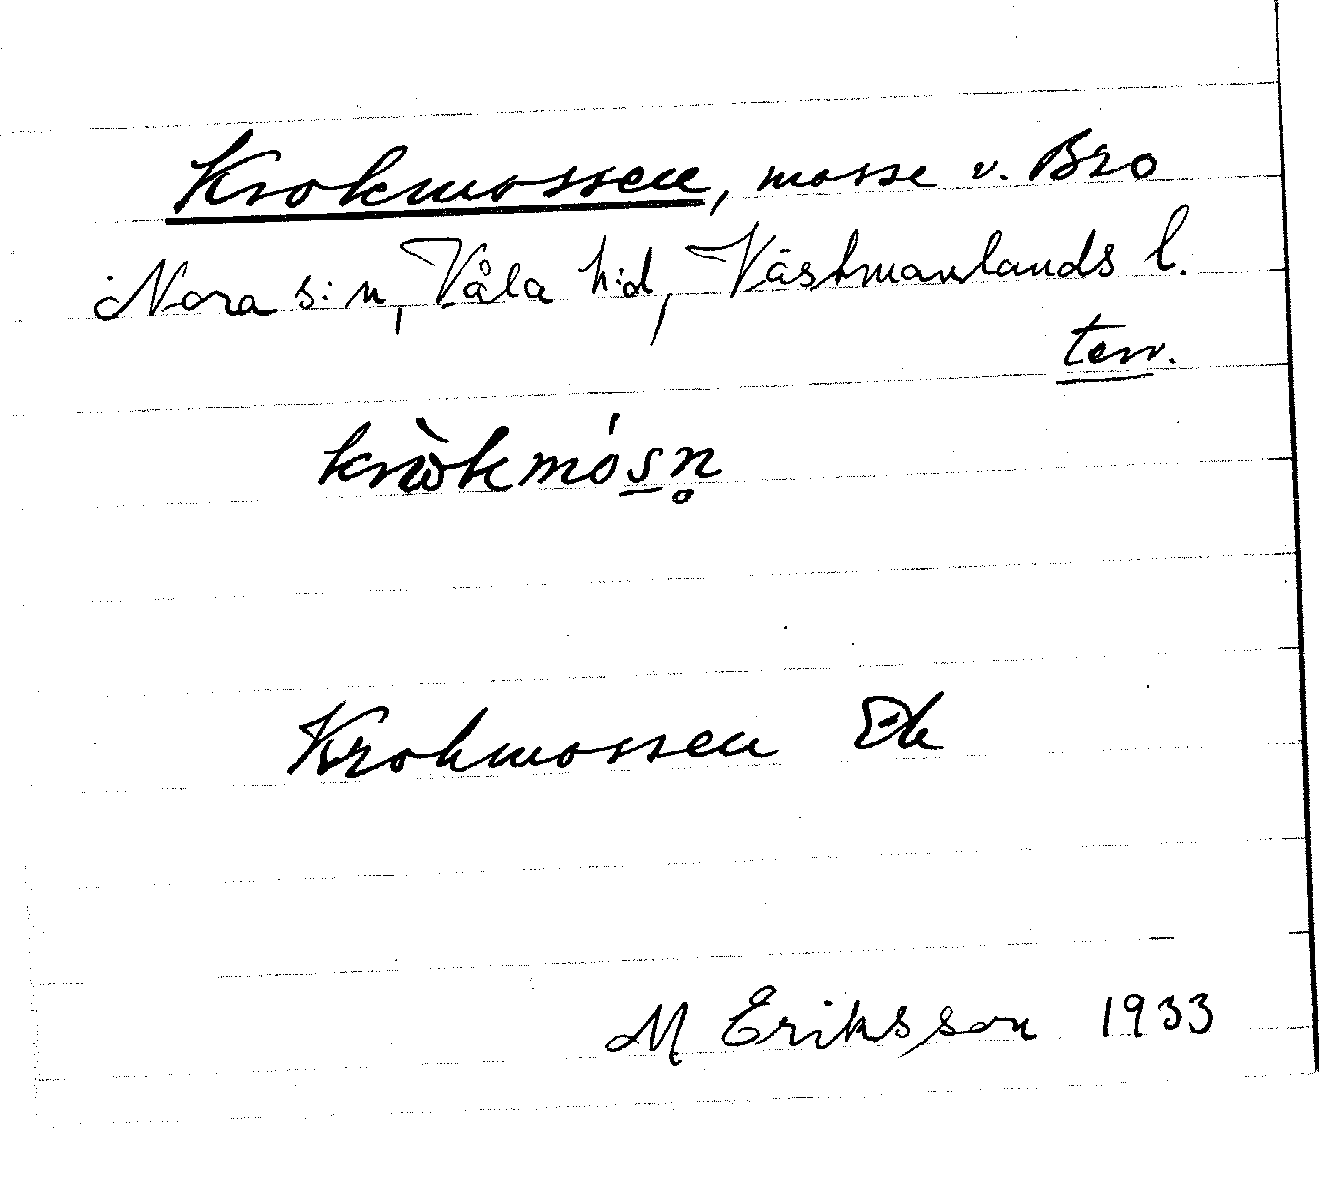 Krokmossen, mosse v. Bro
Nora s:n, Våla h:d, Västmanlands l.
terr.
krὼkmósn̥
Krokmossen Ek
M Eriksson 1933